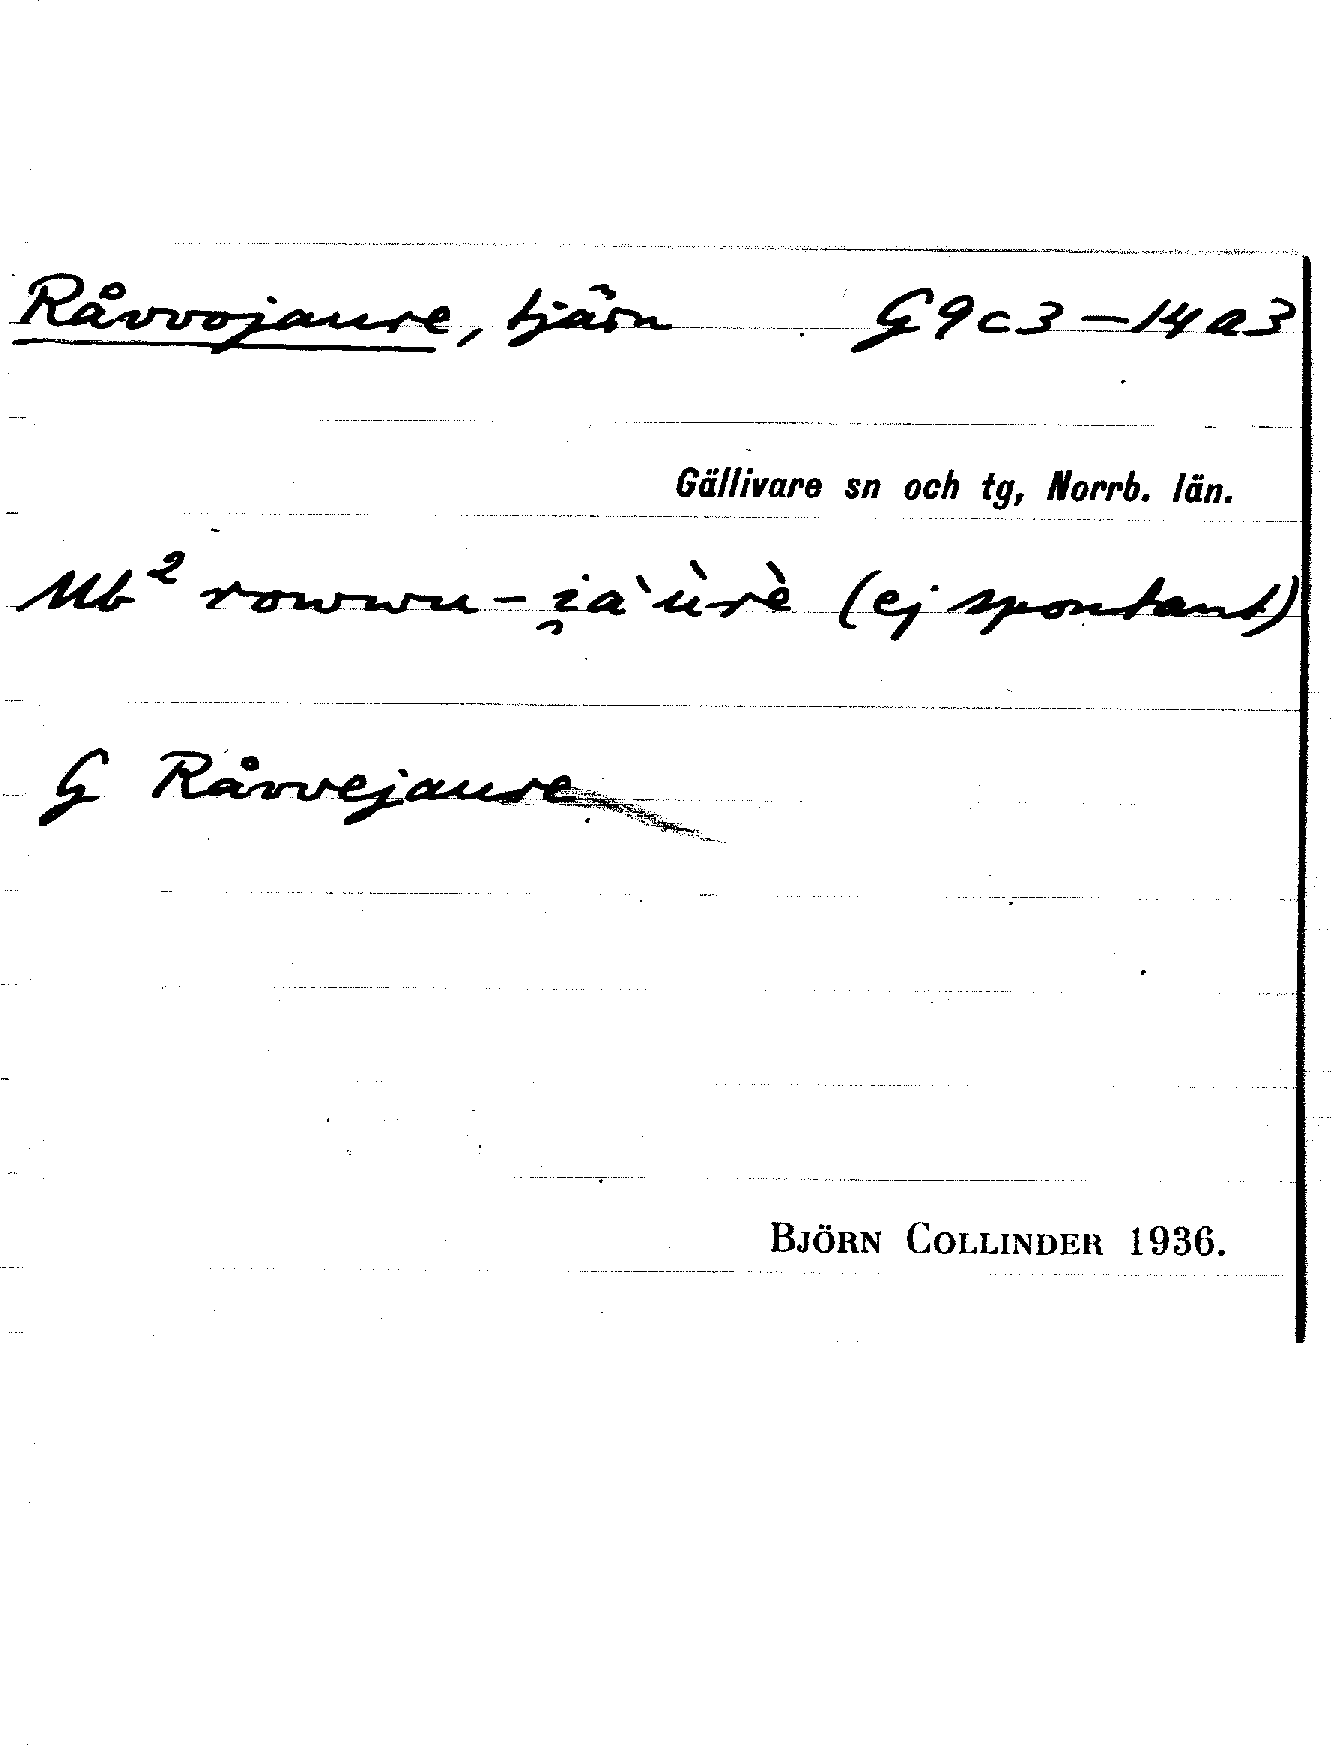 Råvvojaure, tjärn G9c3–14a3
Gällivare sn och tg, Norrb. län.
Mb² rowwu-i̯a`ùrè (ej spontant)
G Råvvejaure
BJÖRN COLLINDER 1936.